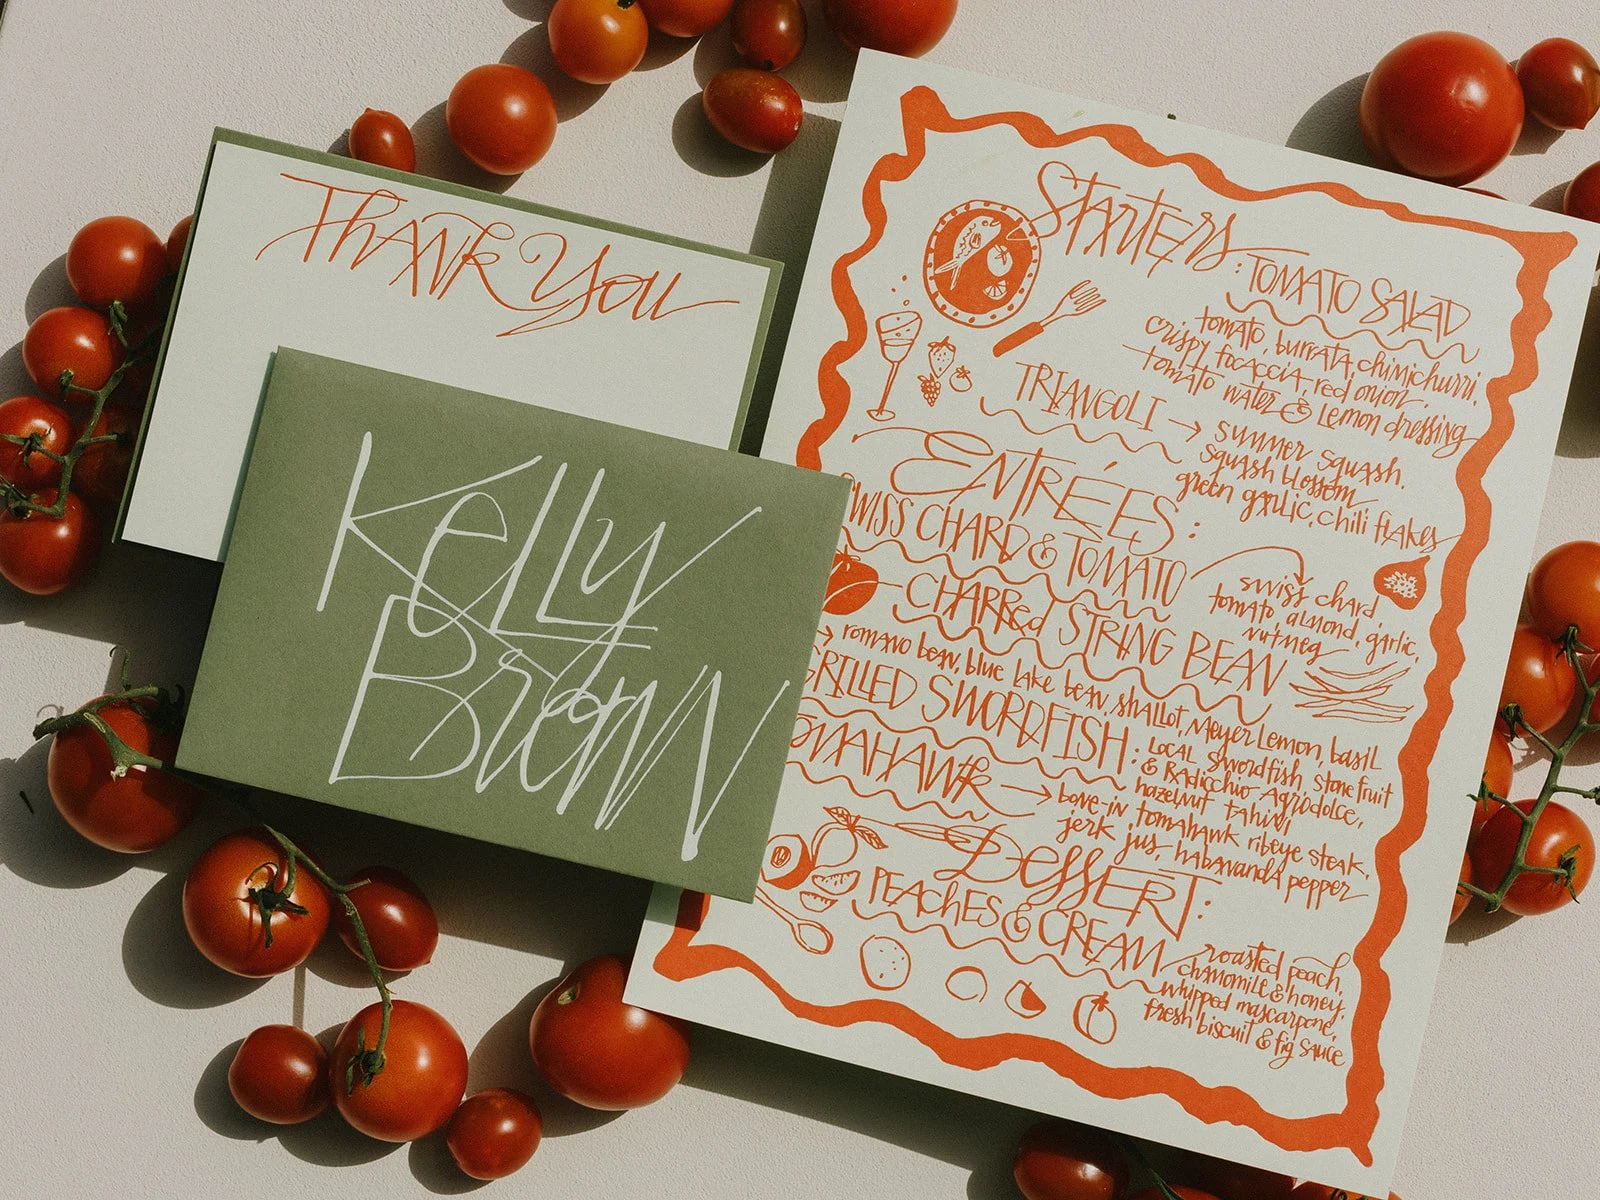 Thank You
Kelly
Brown
Starters
: TOMATO SALAD
tomato, burrata, chimichurri,
crispy focaccia, red onion,
tomato water & lemon dressing
TRIANGOLI → summer squash,
squash blossom
green garlic, chili flakes
ENTRÉES:
SWISS CHARD & TOMATO
swiss chard,
tomato, almond, garlic,
nutmeg
CHARRed STRING BEAN
→ romano bean, blue lake bean, shallot, Meyer Lemon, basil
GRILLED SWORDFISH: Local swordfish stone fruit
& Radicchio Agrodolce,
hazelnut tahini
TOMAHAWK → bone-in tomahawk ribeye steak,
jerk jus, habanada pepper
Dessert:
PEACHES & CREAM
roasted peach,
chamomile & honey,
whipped mascarpone,
fresh biscuit & fig sauce